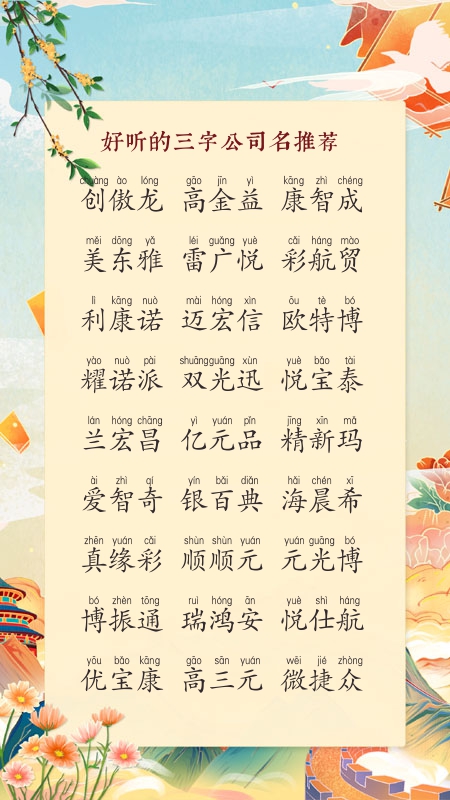 好听的三字公司名推荐
chuàng ào lóng gāo jīn yì kāng zhì chéng
创傲龙 高金益 康智成
měi dōng yǎ léi guǎng yuè cǎi háng mào
美东雅 雷广悦 彩航贸
lì kāng nuò mài hóng xìn ōu tè bó
利康诺 迈宏信 欧特博
yào nuò pài shuāng guāng xùn yuè bǎo tài
耀诺派 双光迅 悦宝泰
lán hóng chāng yì yuán pǐn jīng xīn mǎ
兰宏昌 亿元品 精新玛
ài zhì qí yín bǎi diǎn hǎi chén xī
爱智奇 银百典 海晨希
zhēn yuán cǎi shùn shùn yuán yuán guāng bó
真缘彩 顺顺元 元光博
bó zhèn tōng ruì hóng ān yuè shì háng
博振通 瑞鸿安 悦仕航
yōu bǎo kāng gāo sān yuán wēi jié zhòng
优宝康 高三元 微捷众